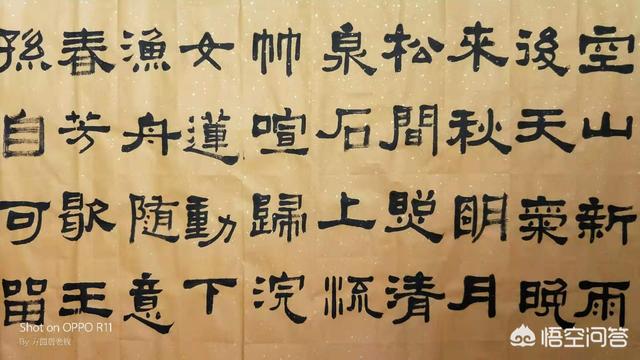 空山新雨
後天氣晚
來秋明月
松間照清
泉石上流
竹喧歸浣
女蓮動下
漁舟随意
春芳歇王
孫自可留
Shot on OPPO R11
By
悟空问答